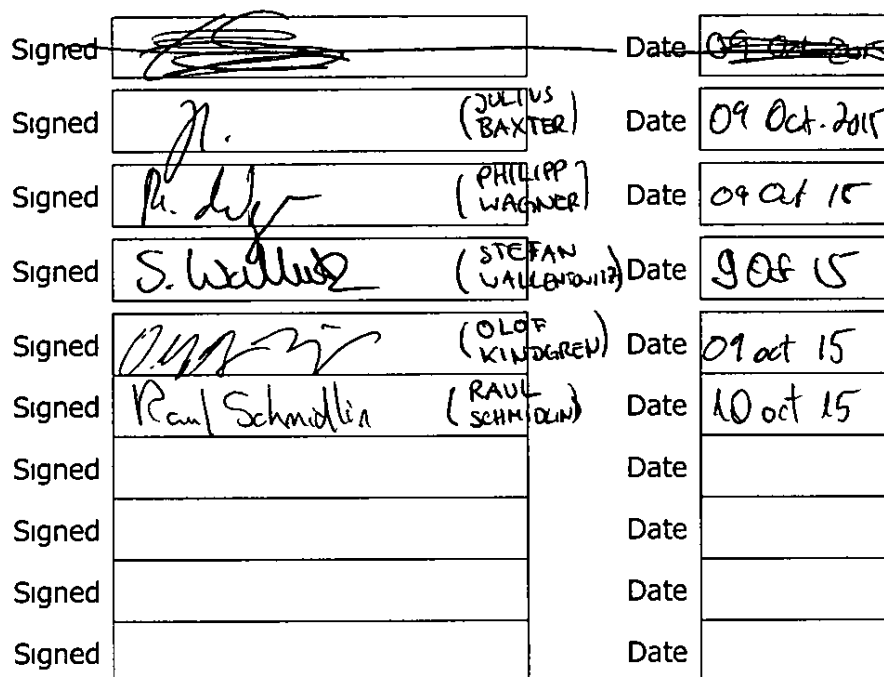 Signed Date 09 Oct 2015
Signed (JULIUS BAXTER) Date 09 Oct. 2015
Signed (PHILIPP WAGNER) Date 09 Oct 15
Signed S. Wallentowitz (STEFAN WALLENTOWITZ) Date 9 Oct 15
Signed (OLOF KINDGREN) Date 09 oct 15
Signed Raul Schmidlin (RAUL SCHMIDLIN) Date 10 oct 15
Signed Date
Signed Date
Signed Date
Signed Date